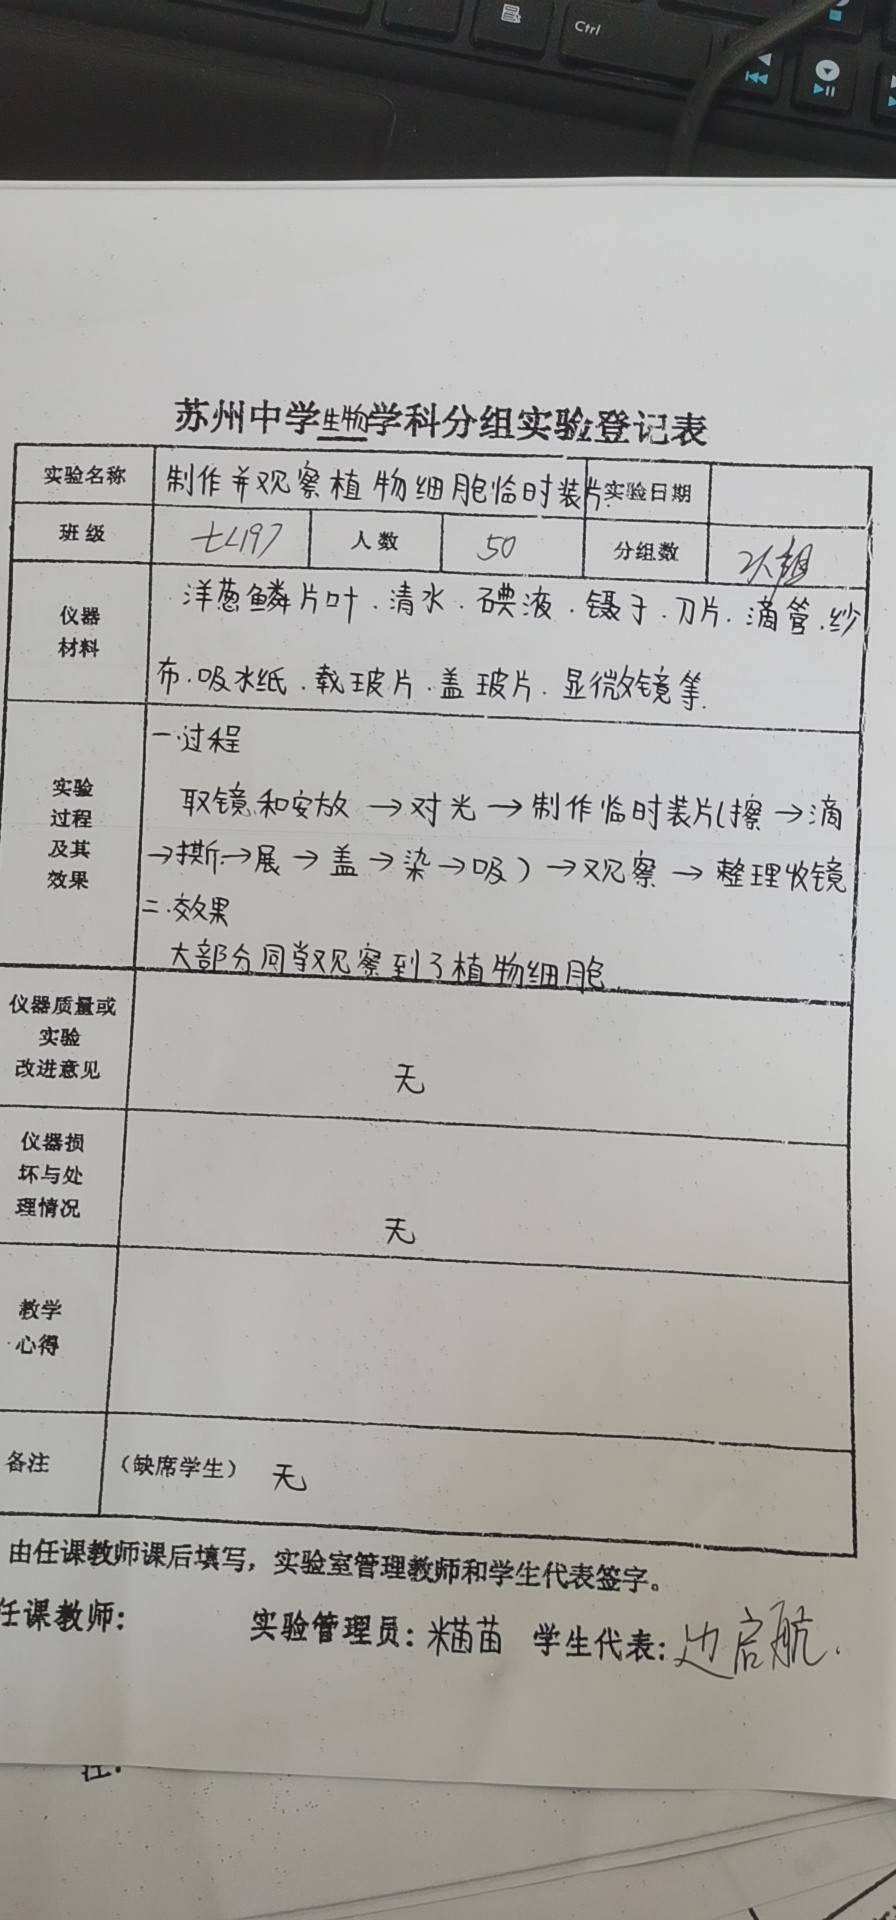 Ctrl
苏州中学生物学科分组实验登记表
实验名称 制作并观察植物细胞临时装片 实验日期
班级 人数 50 分组数
仪器
材料
洋葱鳞片叶.清水.碘液.镊子.刀片.滴管.纱
布.吸水纸.载玻片.盖玻片.显微镜等.
实验
过程
及其
效果
一.过程
取镜和安放→对光→制作临时装片(擦→滴
→撕→展→盖→染→吸)→观察→整理收镜
二.效果
大部分同学观察到了植物细胞.
仪器质量或
实验
改进意见
无
仪器损
坏与处
理情况
无
教学
心得
备注 (缺席学生) 无
由任课教师课后填写，实验室管理教师和学生代表签字。
任课教师: 实验管理员: 苗 学生代表: 边启航.
注: